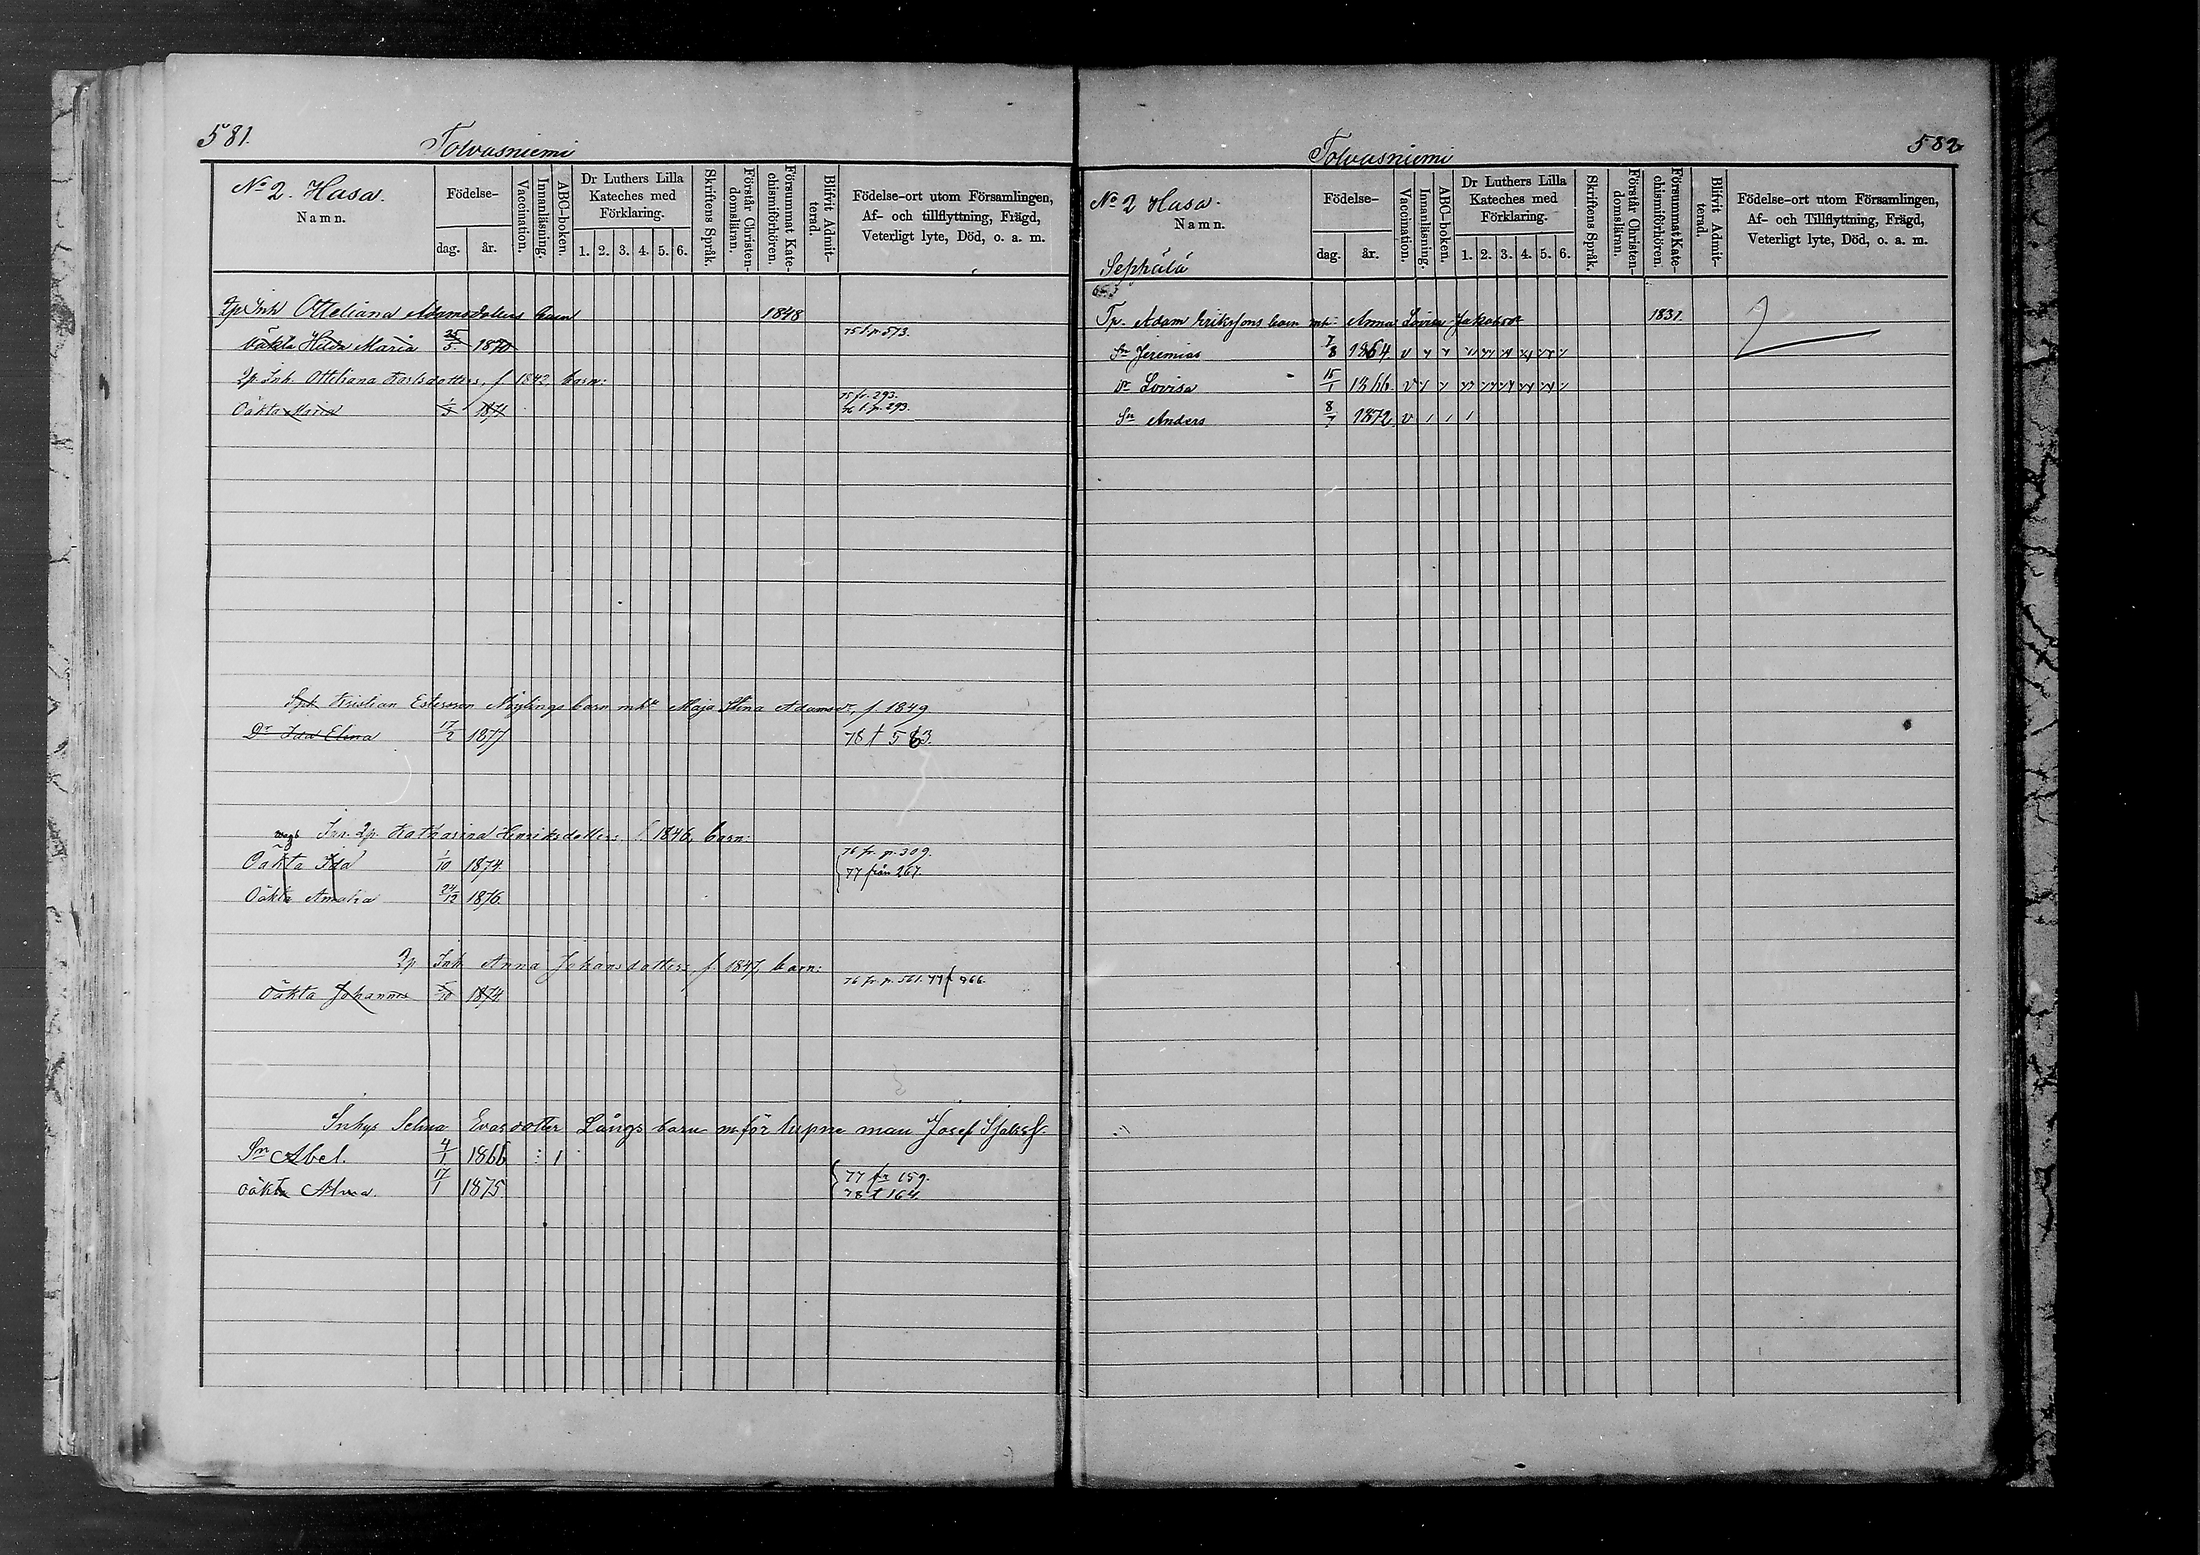 581.
Tolvasniemi
No 2. Hasa.
Namn.
Födelse-
dag.
år.
Vaccination.
Innanläsning.
ABC-boken.
Dr Luthers Lilla
Kateches med
Förklaring.
1. 2. 3. 4. 5. 6.
Skriftens Språk.
Förstår Christen-
domsläran.
Försummat Kate-
chismiförhören.
Blifvit Admit-
terad.
Födelse-ort utom Församlingen,
Af- och tillflyttning, Frägd,
Veterligt lyte, Död, o. a. m.
Inh Otteliana Adamsdotters barn 1848
Oäkta Hilda Maria 25/5 1870 75 t. p. 573.
Inh. Otteliana Karlsdotters, f. 1842 barn:
Oäkta 75 fr. 293.
76 t. p. 293.
Kristian Esterson Nöylings barn mhu Maja Stina Adamsdr, f. 1849.
Dr Ida Elina 17/2 1877 78 t 563.
Katharina Henriksdotters, f. 1846, barn:
Oäkta Ida 1/10 1874 76 fr. p. 309.
77 från 267.
Oäkta Amalia 24/12 1876.
Inh Anna Johansdotters f. 1847, barn:
Oäkta Johannes 5/10 1874 76 fr. p. 561. 77 t 966.
Inhys Selma Evasdotter Långs barn m förlupne man Josef
Sn Abel. 4/1 1866 1
Oäkta Alma. 17/1 1875 77 fr 159.
78 t 164.
582
Tolvasniemi
No 2 Hasa.
Namn.
Seppälä
Födelse-
dag.
år.
Vaccination.
Innanläsning.
ABC-boken.
Dr Luthers Lilla
Kateches med
Förklaring.
1. 2. 3. 4. 5. 6.
Skriftens Språk.
Förstår Christen-
domsläran.
Försummat Kate-
chismiförhören.
Blifvit Admit-
terad.
Födelse-ort utom Församlingen,
Af- och Tillflyttning, Frägd,
Veterligt lyte, Död, o. a. m.
Tp. Adam Erikssons barn mh: Anna Lovisa Jakobsdr 1831.
Sn Jeremias 7/8 1864 v
Dr Lovisa 15/1 1866 v
Sn Anders 8/7 1872 v 1 1 1